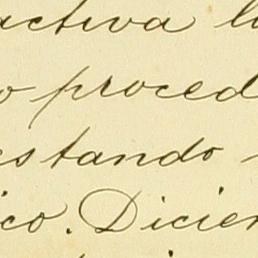 activa l
o proced
estando
ico. Dicien